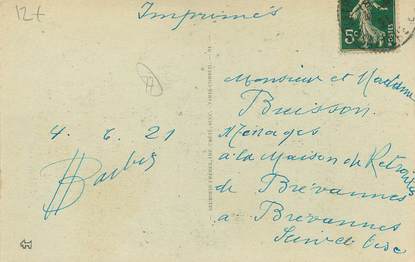 12+
Imprimés
5c
POSTES
A
Monsieur et Madame
Buisson
Ménages
à la Maison de Retraite
de Brévannes
à Brévannes
Seine et Oise
4. 6. 21